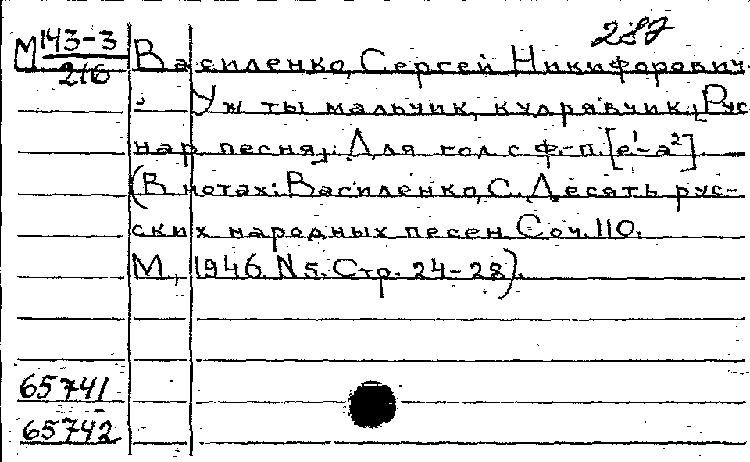 287
М 143-3
216
Василенко, Сергей Никифорович.
Уж ты мальчик, кудрявчик. [Рус
нар. песня]. Для гол. с ф.-п. [e¹-a²].
(В нотах: Василенко, С. Десять рус-
ских народных песен. Соч. 110.
М., 1946. N 5. Стр. 24-28).
65741
65742